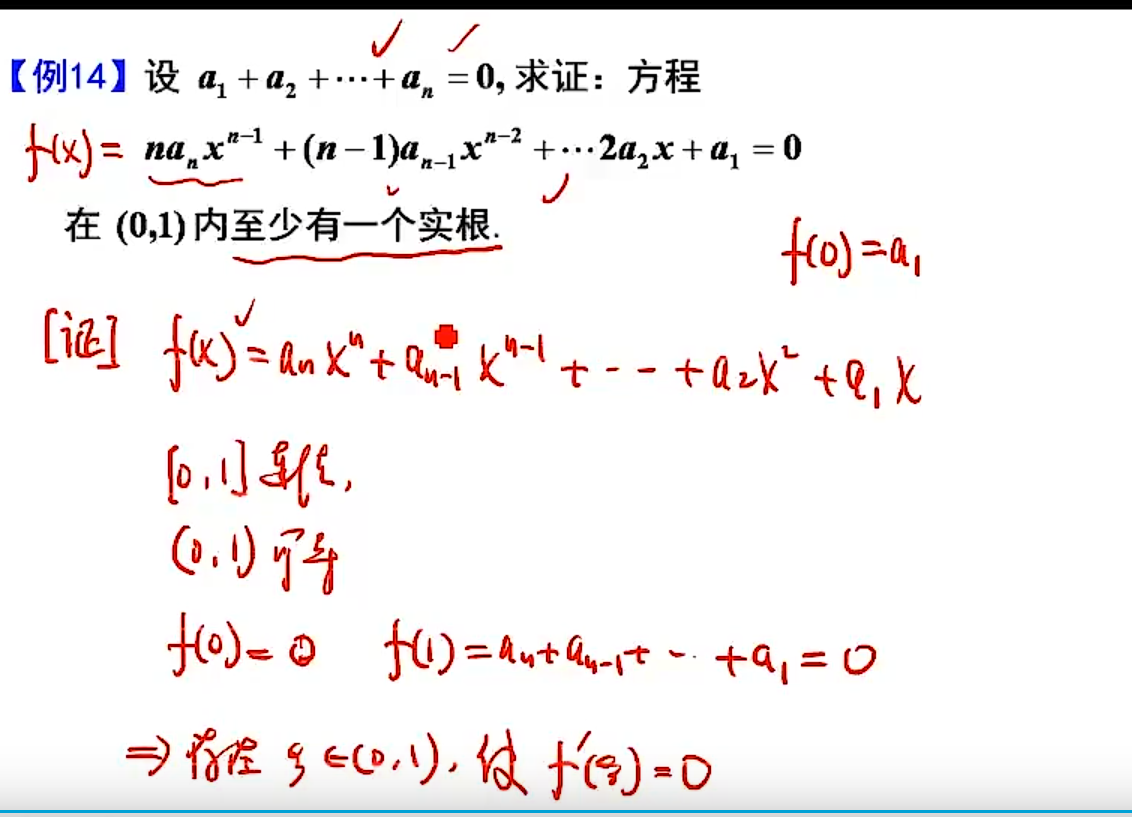 【例14】设 a₁ + a₂ + ⋯ + aₙ = 0, 求证：方程
f(x) = naₙxⁿ⁻¹ + (n − 1)aₙ₋₁xⁿ⁻² + ⋯2a₂x + a₁ = 0
在 (0,1) 内至少有一个实根.
f(0) = a₁
[证] f(x) = aₙxⁿ + aₙ₋₁xⁿ⁻¹ + ⋯ + a₂x² + a₁x
[0,1] 连续,
(0,1) 可导
f(0) = 0 f(1) = aₙ + aₙ₋₁ + ⋯ + a₁ = 0
⇒ 存在 ξ ∈ (0,1), 使 f′(ξ) = 0